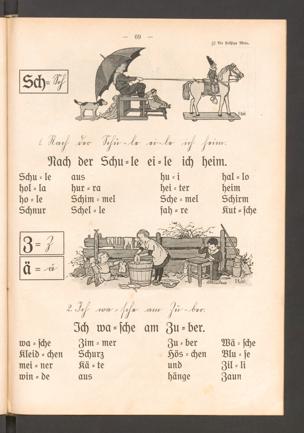 — 69 —
Sch = Sch
1. Nach der Schu=le ei=le ich heim.
Nach der Schu=le ei=le ich heim.
Schu=le aus hu=i hal=lo
hol=la hur=ra hei=ter heim
ho=le Schim=mel Sche=mel Schirm
Schnur Schel=le fah=re Kut=sche
Z = Z
ä = ä
2. Ich wa=sche am Zu=ber.
Ich wa=sche am Zu=ber.
wa=sche Zim=mer Zu=ber Wä=sche
Kleid=chen Schurz Hös=chen Blu=se
mei=ner Kä=te und Zil=li
win=de aus hänge Zaun